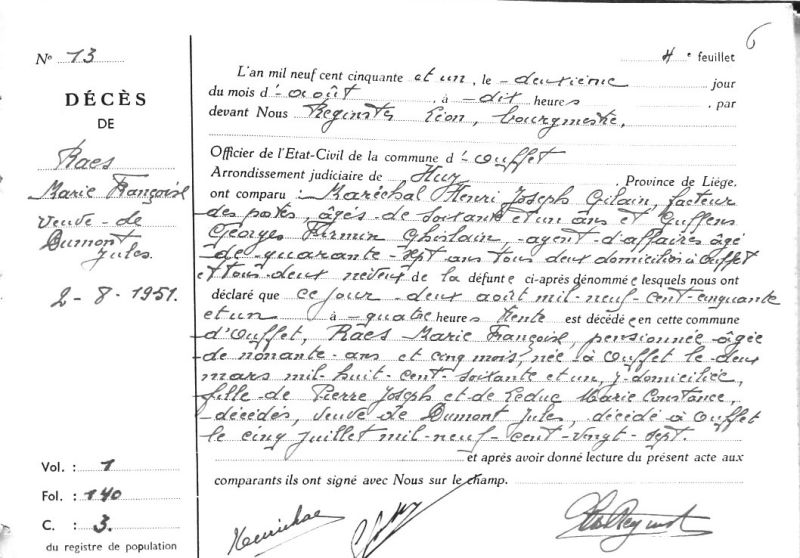 6
4e feuillet
No 13
DÉCÈS
DE
Raes
Marie Françoise
Veuve de
Dumont
Jules.
2-8-1951.
Vol. : 1
Fol. : 140
C. : 3.
du registre de population
L'an mil neuf cent cinquante et un, le - deuxième jour
du mois d'-août, à -dix heures, par
devant Nous Reginster Léon, bourgmestre,
Officier de l'Etat-Civil de la commune d'Ouffet
Arrondissement judiciaire de Huy, Province de Liége,
ont comparu : Maréchal Henri Joseph Gilain, facteur
des postes, âgés de soixante et un ans et Guffens
Georges Firmin Ghislain, agent d'affaires âgé
de quarante-sept ans tous deux domiciliés à Ouffet
et tous deux neveux de la défunte ci-après dénommée lesquels nous ont
déclaré que ce jour deux août mil-neuf-cent-cinquante
et un à - quatre heures trente est décédée en cette commune
d'Ouffet, Raes Marie Françoise, pensionnée âgée
de nonante ans et cinq mois, née à Ouffet le deux
mars mil-huit-cent-soixante et un, y domiciliée,
fille de Pierre Joseph et de Leduc Marie Constance,
décédés, veuve de Dumont Jules, décédé à Ouffet
le cinq juillet mil-neuf-cent-vingt-sept.
et après avoir donné lecture du présent acte aux
comparants ils ont signé avec Nous sur le champ.